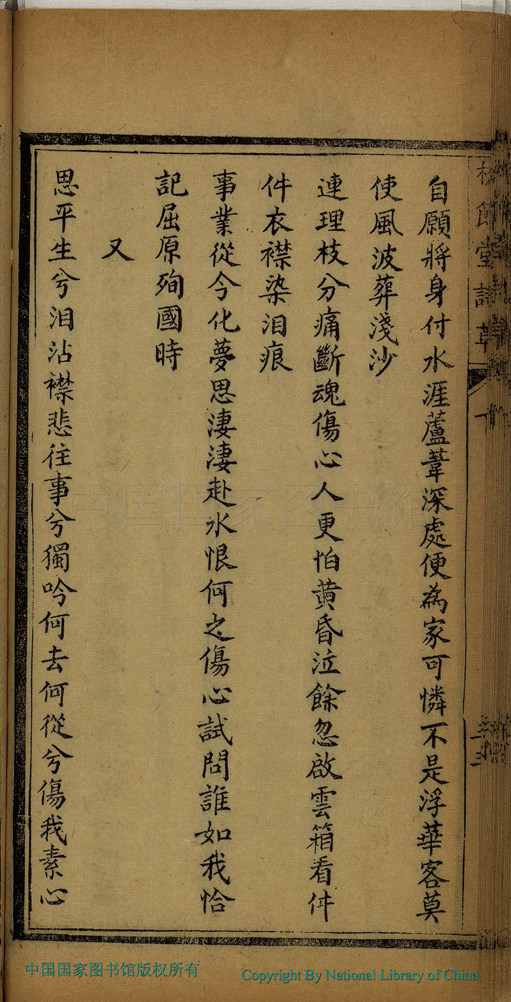 自願將身付水涯蘆葦深處便為家可憐不是浮華客莫
使風波葬淺沙
連理枝分痛斷魂傷心人更怕黃昏泣餘忽啟雲箱看件
件衣襟染泪痕
事業從今化夢思淒淒赴水恨何之傷心試問誰如我恰
記屈原殉國時
又
思平生兮泪沾襟悲往事兮獨吟何去何從兮傷我素心
中国国家图书馆版权所有
Copyright By National Library of China